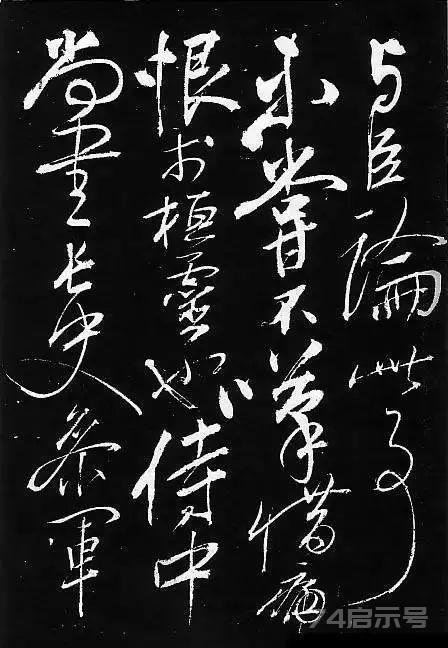 与臣論此事
未嘗不嘆惜痛
恨於桓靈也侍中
尚書長史參軍
74启示号